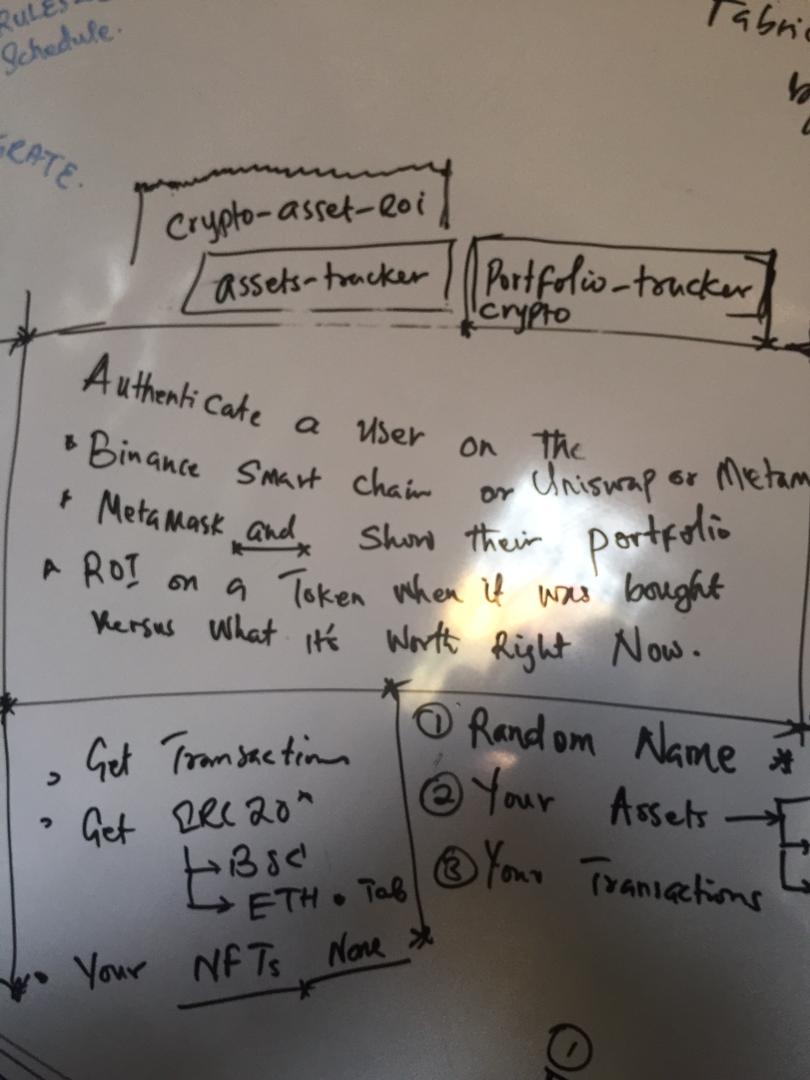 RULES
Schedule.
Tabric
GRATE.
Crypto-asset-Roi
assets-tracker
Portfolio-tracker
crypto
Authenticate a user on the
Binance Smart chain or Uniswap or Metam
MetaMask and show their portfolio
ROI on a Token when it was bought
versus what it's worth Right Now.
Get Transaction
Get ERC20
BSC
ETH • Tab
• Your NFTs None
① Random Name *
② Your Assets →
③ Your Transactions
①